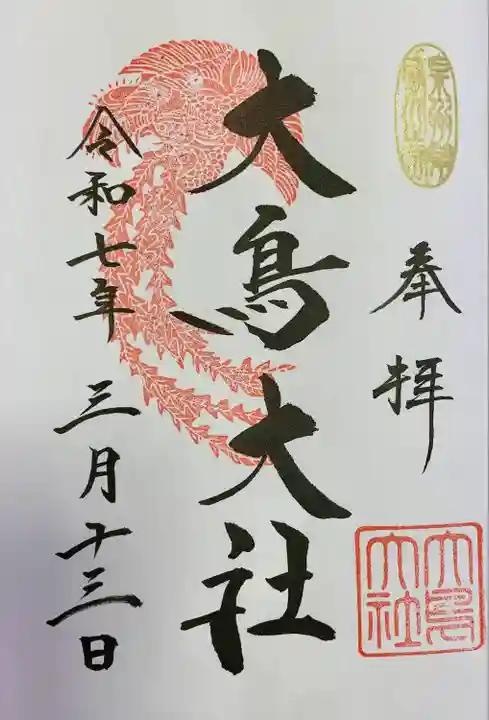 奉拝
大鳥大社
大鳥大社
令和七年 三月十三日